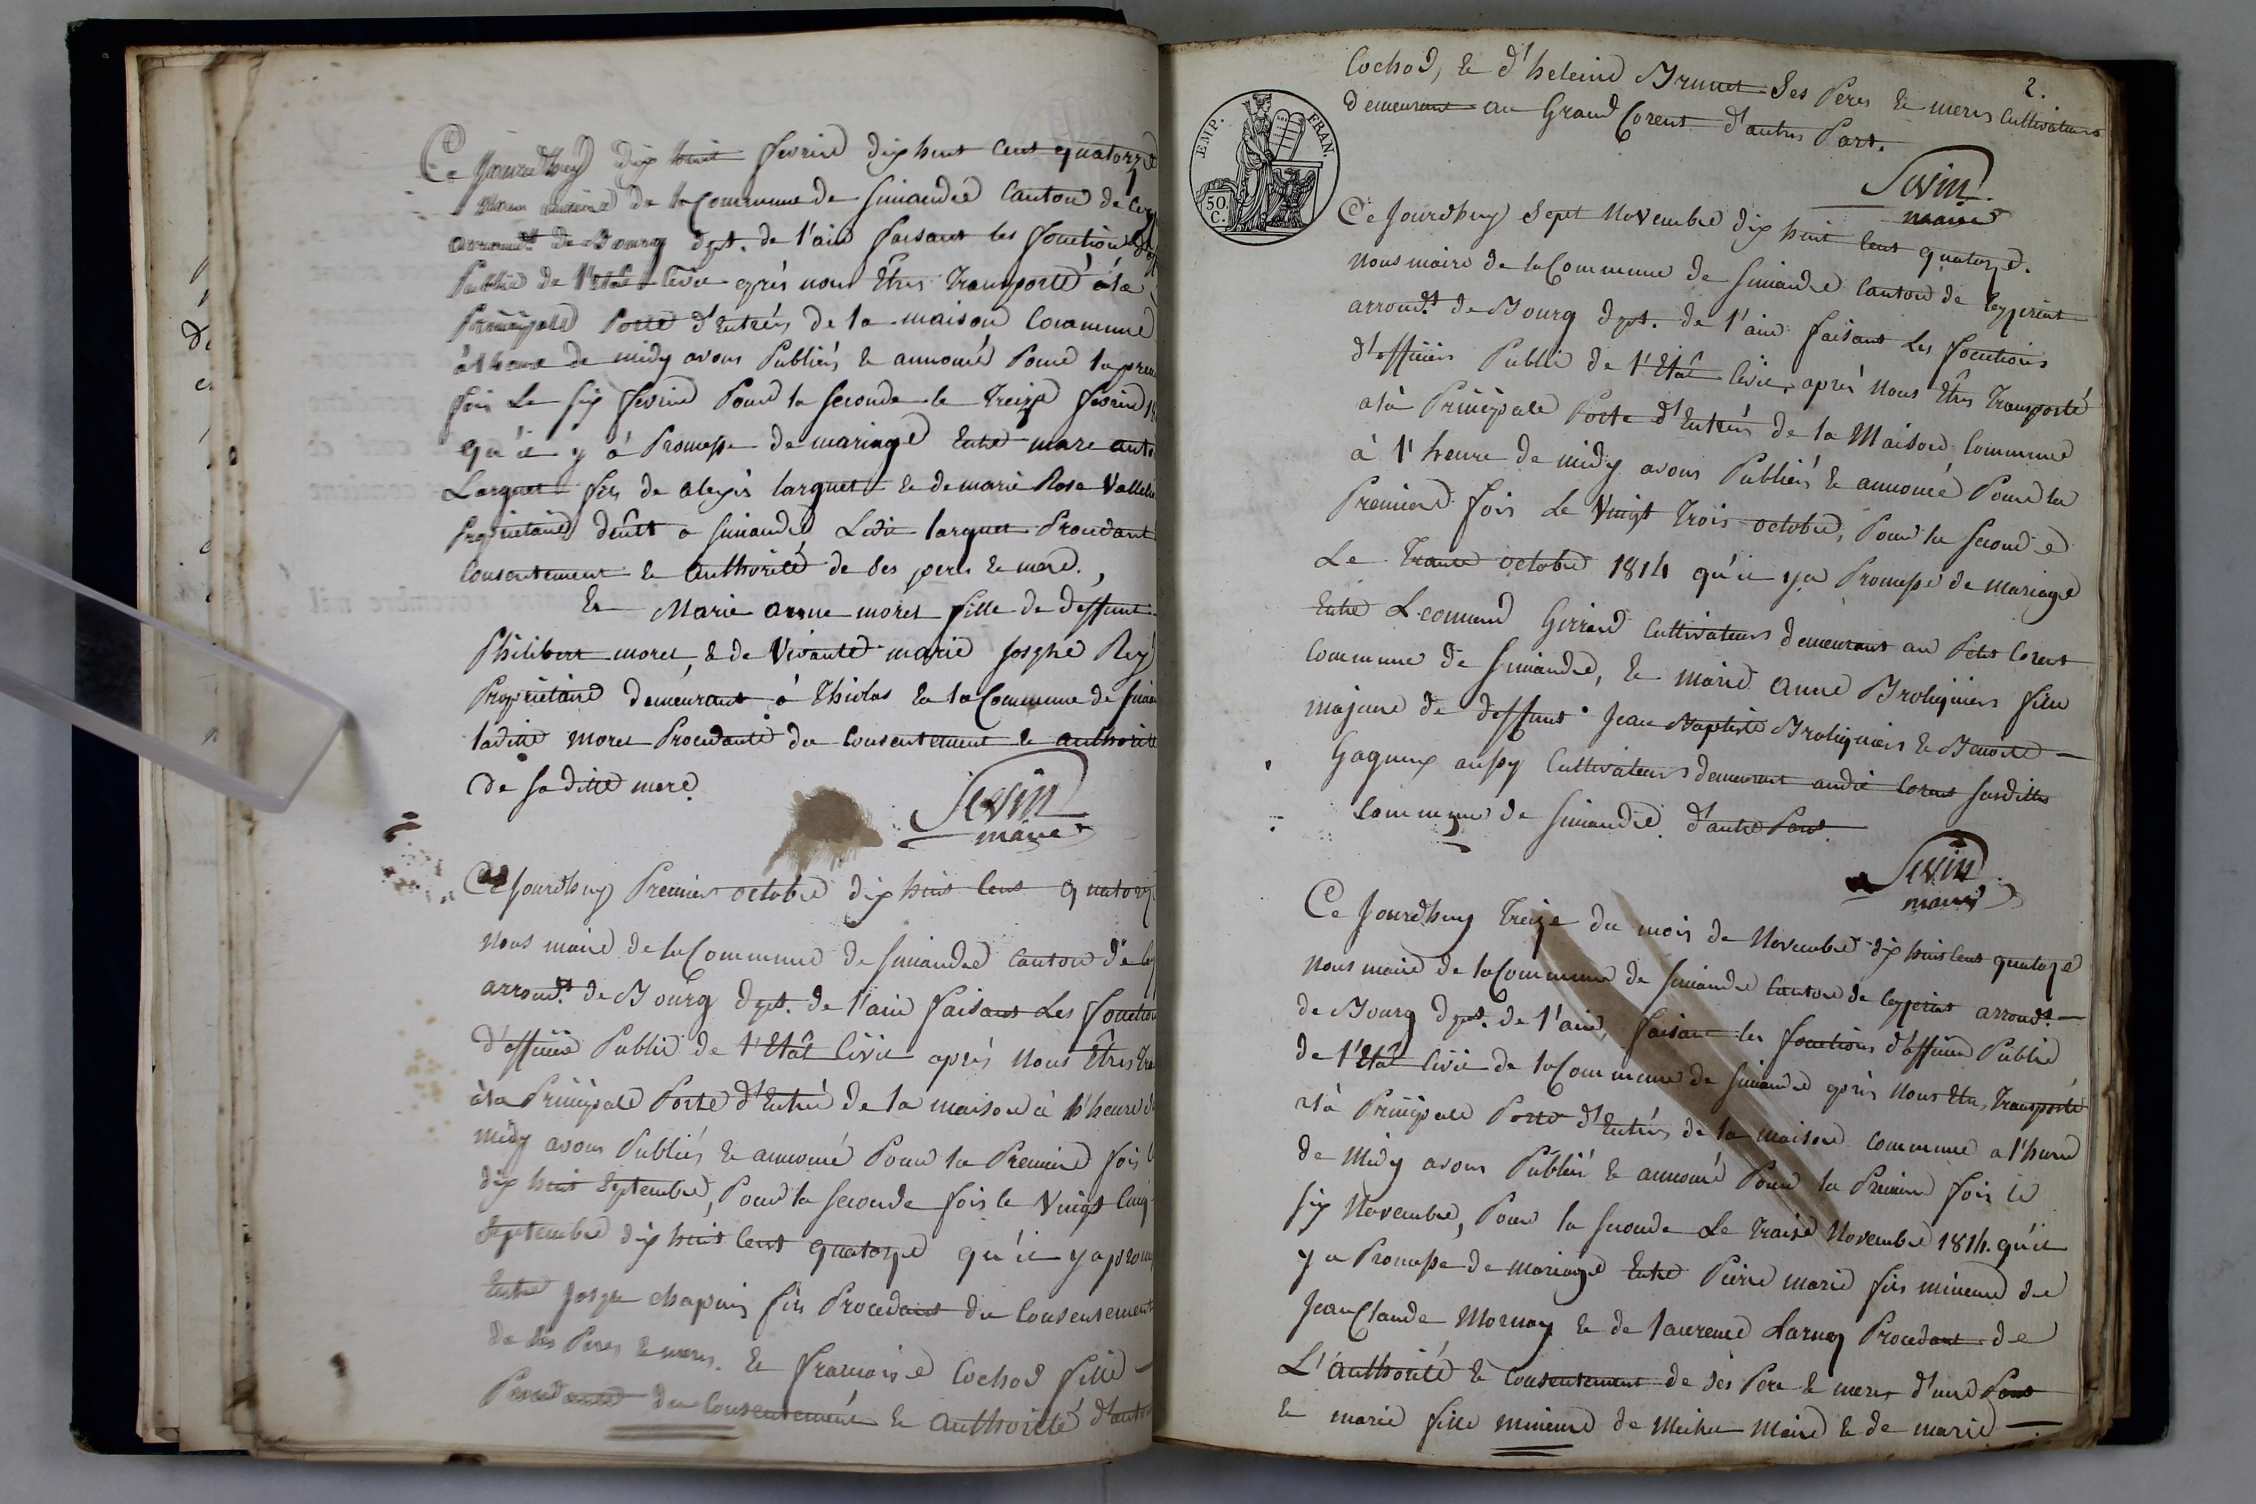 Ce Jourdhuy dix huit fevrier dix huit cent quatorze
Nous maire de la Commune de Simandre Canton de Cey
arrondt. de Bourg dpt. de l'ain faisant les fonctions d'of
Public de l'Etât Civil après nous Etres Transporté à la
Principale Porte d'Entrés de la maison Commune
à l'heure de midy avons Publiés & annoncé Pour la prem
fois Le six fevrier Pour la seconde le Treize fevrier 18
qu'il y à Promesse de mariage Entre marc anto
Larguet fils de alexis larguet & de marie Rose Vallet
Propriétaire deûts a Simandre Ledit larguet Procedant
Consentement & Authorité de ses peres & mere.
Et Marie anne moret fille de deffunt
Philibert moret, & de Vivante marie Josphe Rey
Propriétaire demeurant à Thiolas En la Commune de Siman
laditte moret Procedante du Consentement & authorité
de saditte mere.
Sevin
maire
Ce Jourdhuy Premier octobre dix huit Cent quatorz
Nous maire de la Commune de Simandre Canton de Cey
arrondt. de Bourg dpt. de l'ain faisant Les fonction
d'officier Public de l'Etât Civil après Nous Etres Tra
à la Principale Porte d'Entré de la maison à l'heure de
midy avons Publiés & annoncé Pour la Premiere fois l
dix huit Septembre, Pour la Seconde fois le Vingt Cinq
Septembre dix huit Cent quatorze qu'il y a prom
Entre Josph chapuis fils Procedant du Consentement
de ses Peres & meres. Et francoise Cochod fille
Procedante du Consentement & Authorité d'anto
2.
Cochod, & d'heleine Brunet Ses Peres & meres Cultivateurs
demeurant au Grand Corent d'autres Part.
EMP. FRAN.
50 C.
Sevin
maire
Ce Jourdhuy Sept Novembre dix huit Cent quatorze.
Nous maire de la Commune de Simandre Canton de Ceyzeriat
arrondt. de Bourg dpt. de l'ain faisant Les fonctions
d'officiers Public de l'Etât Civil, après Nous Etres Transporté
a là Principale Porte d'Entrés de la Maison Commune
à l'heure de midy avons Publiés & annoncé Pour la
Premiere fois Le Vingt Trois octobre, Pour la Seconde
Le Trante octobre 1814 qu'il y a Promesse de mariage
Entre Leonnard Girrard Cultivateurs demeurant au Petit Corent
Commune de Simandre, & marie Anne Broliquiers fille
majeure de deffunt Jean Baptiste Broliquiers & Benoite
Gagneux aussy Cultivateurs demeurant audit Corent Susditte
Commune de Simandre d'autre Part
Sevin
maire
Ce Jourdhuy Treize du mois de Novembre dix huit Cent quatorze
Nous maire de la Commune de Simandre Canton de Ceyzeriat arrondt.
de Bourg dpt. de l'ain faisant les fonctions d'officier Public
de l'Etât Civil de la Commune de Simandre après Nous Etre Transporté
a là Principale Porte d'Entrés de la maison Commune a l'heure
de Midy avons Publié & annoncé Pour la Premiere fois le
Six Novembre, Pour la Seconde Le Traize Novembre 1814. qu'il
y a Promesse de mariage Entre Pierre marie fils mineur de
Jean Claude Mornay & de laurence Larney Procedant de
L'Authorité & Consentement de ses Pere & meres d'une Part
& marie fille mineure de Maire & de marie